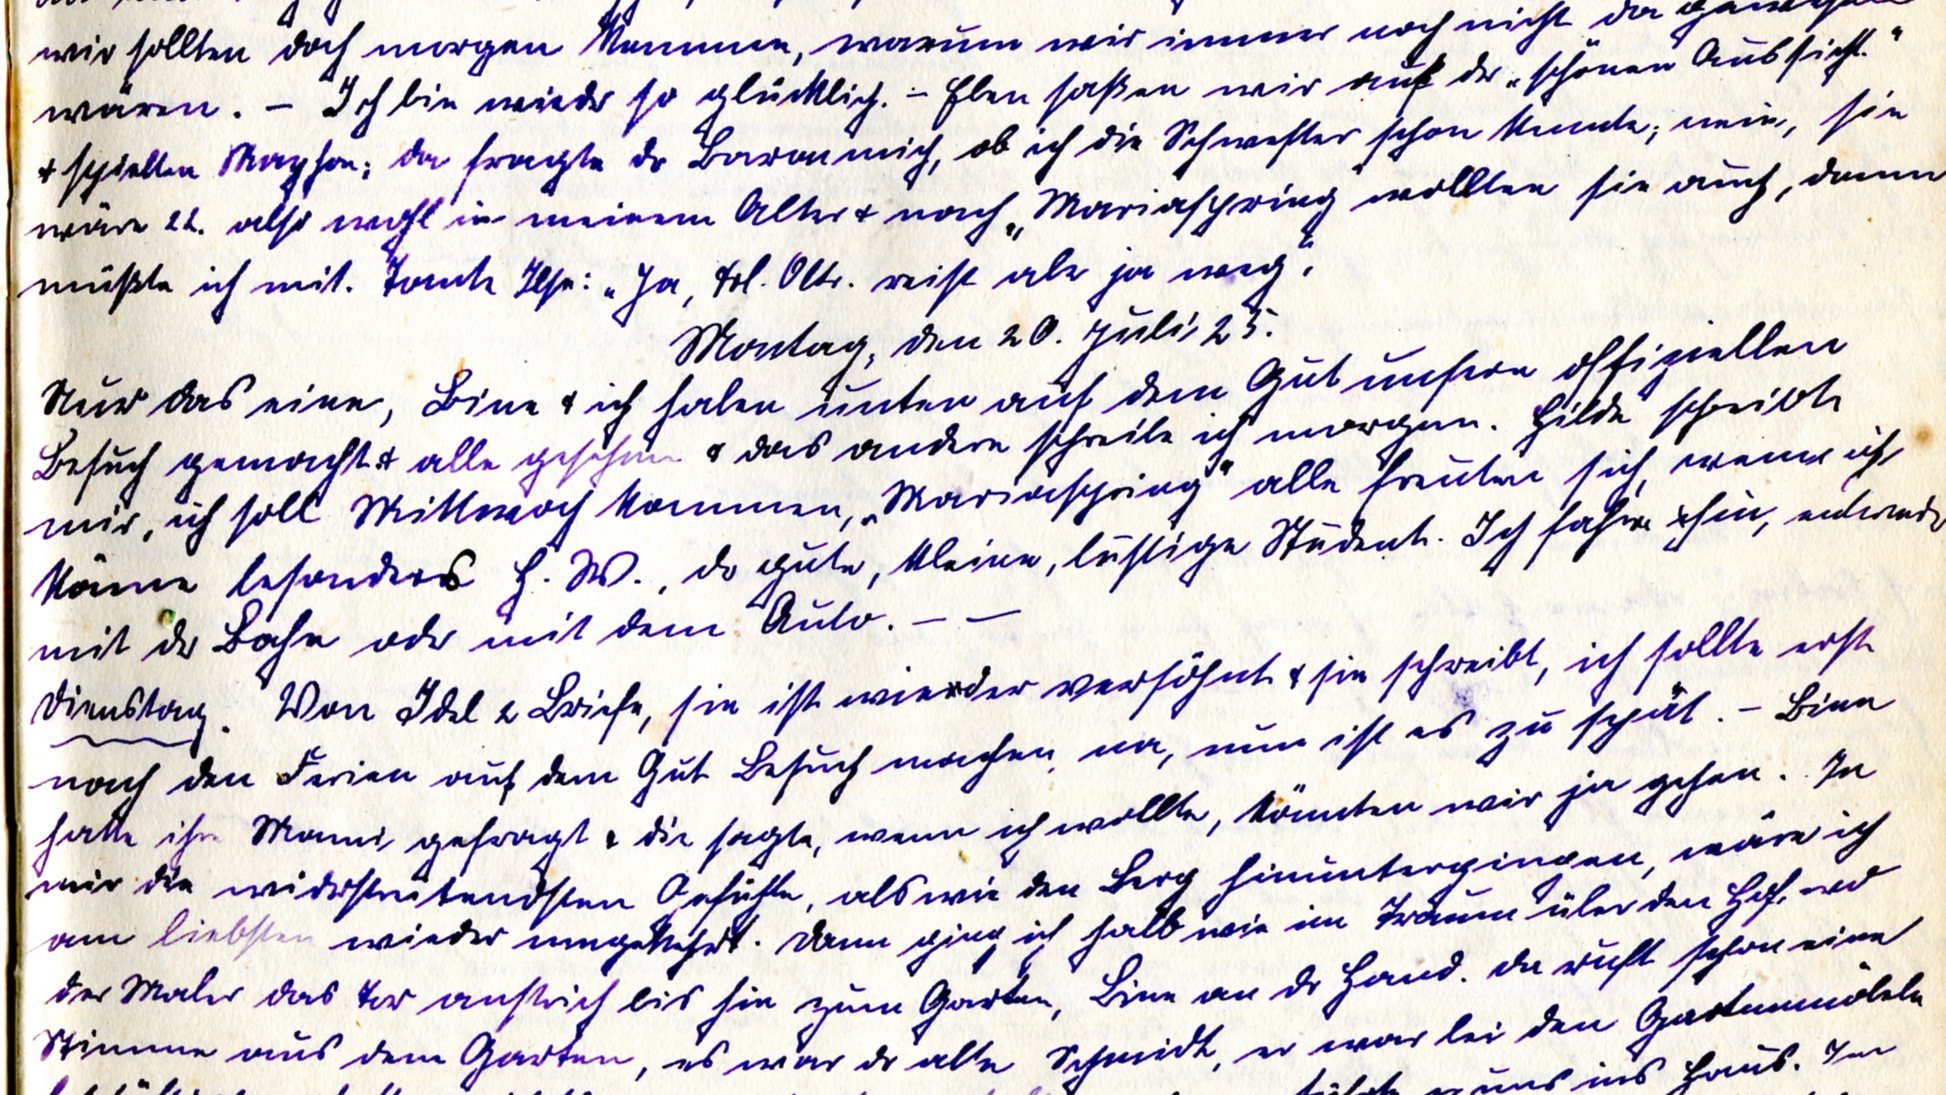 wir sollten doch morgen kommen, warum wir immer noch nicht da gewesen
wären. – Ich bin wieder so glücklich. – Eben saßen wir auf der „schönen Aussicht“
+ spielten; da fragte der Baron mich, ob ich die Schwester schon kennte, nein, sie
wäre 22. also wohl in meinem Alter + nach „Mariaspring“ wollten sie auch, dann
müßte ich mit. Tante Ilse: „Ja, Frl. Oltr. reist aber ja weg“.
Montag, den 20. Juli 25.
Nur das eine, Bine + ich haben unten auf dem Gut unsern offiziellen
Besuch gemacht + alle gesehen + das andere schreibe ich morgen. Hilde schreibt
mir, ich soll Mittwoch kommen, „Mariaspring“ alle freuten sich, wenn ich
käme besonders H. W., der gute, kleine, lustige Student. Ich fahre hin, entweder
mit der Bahn oder mit dem Auto. – –
Dienstag. Von Idel 2 Briefe, sie ist wieder versöhnt + sie schreibt, ich sollte erst
nach den Ferien auf dem Gut Besuch machen, na, nun ist es zu spät. – Bine
hatte ihre Mami gefragt + die sagte, wenn ich wollte, könnten wir ja gehen. In
mir die widerstreitendsten Gefühle, als wir den Berg hinuntergingen, wäre ich
am liebsten wieder umgekehrt. Dann ging ich halb wie im Traum über den Hof, wo
der Maler das Tor anstrich bis hin zum Garten, Bine an der Hand. Da ruft schon eine
Stimme aus dem Garten, es war der alte Schmidt, er war bei den Gartenmöbeln
uns ins Haus. Im